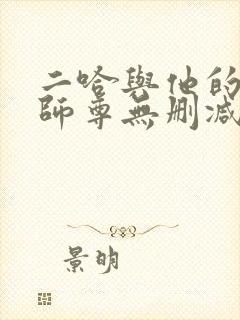 二哈與他的
師尊無删减
景明